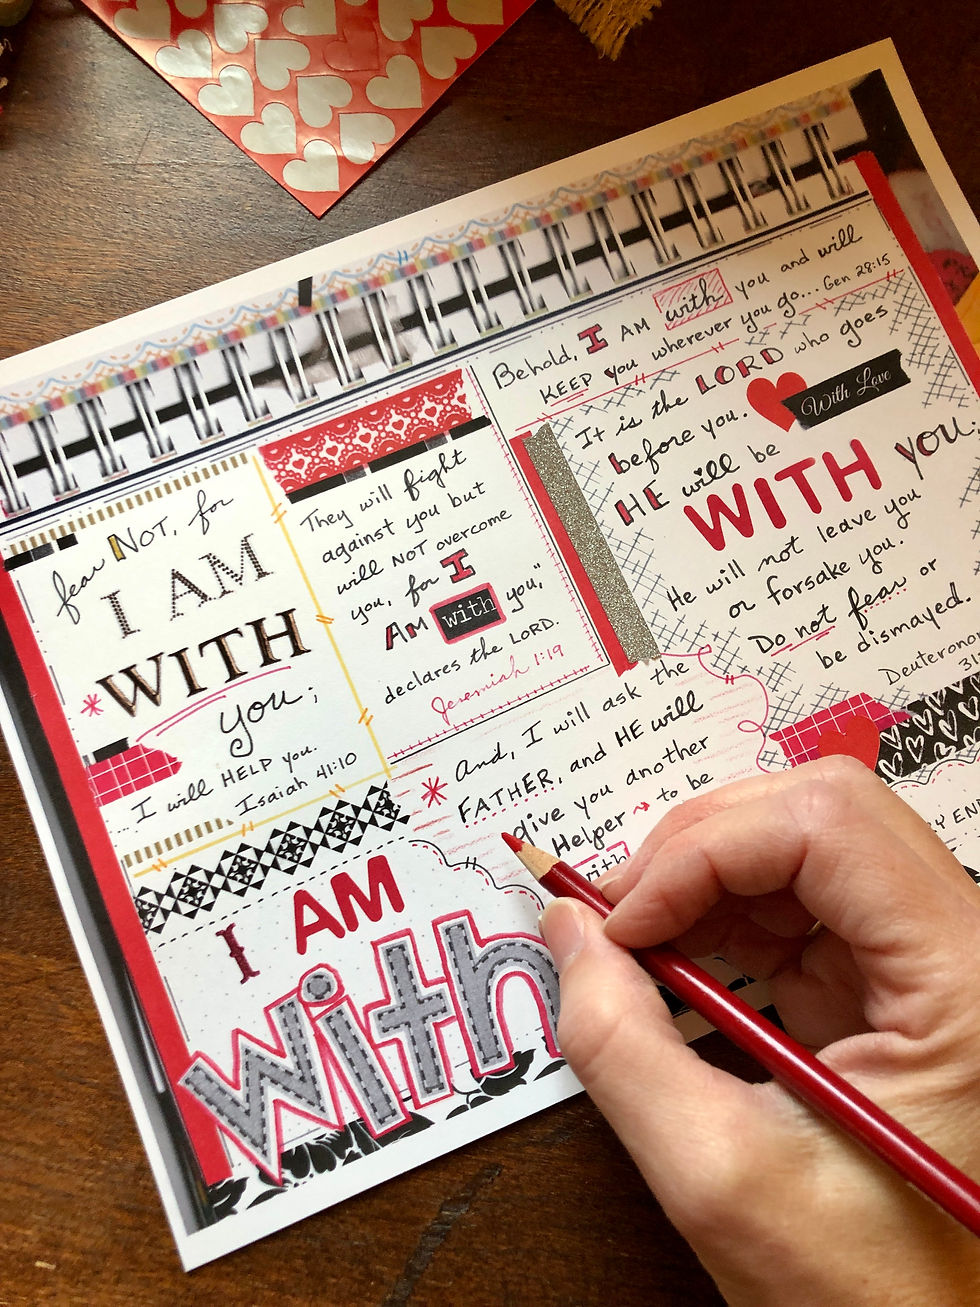 fear NOT, for
I AM
WITH
you;
I will HELP you.
Isaiah 41:10
They will fight
against you but
will NOT overcome
you, for I
AM with you,"
declares the LORD.
Jeremiah 1:19
Behold, I AM with you and will
KEEP you wherever you go.... Gen 28:15
It is the LORD who goes
before you.
With Love
HE will be
WITH you;
He will not leave you
or forsake you.
Do not fear or
be dismayed.
And, I will ask the
FATHER, and HE will
give you another
Helper to be
with
I AM
with